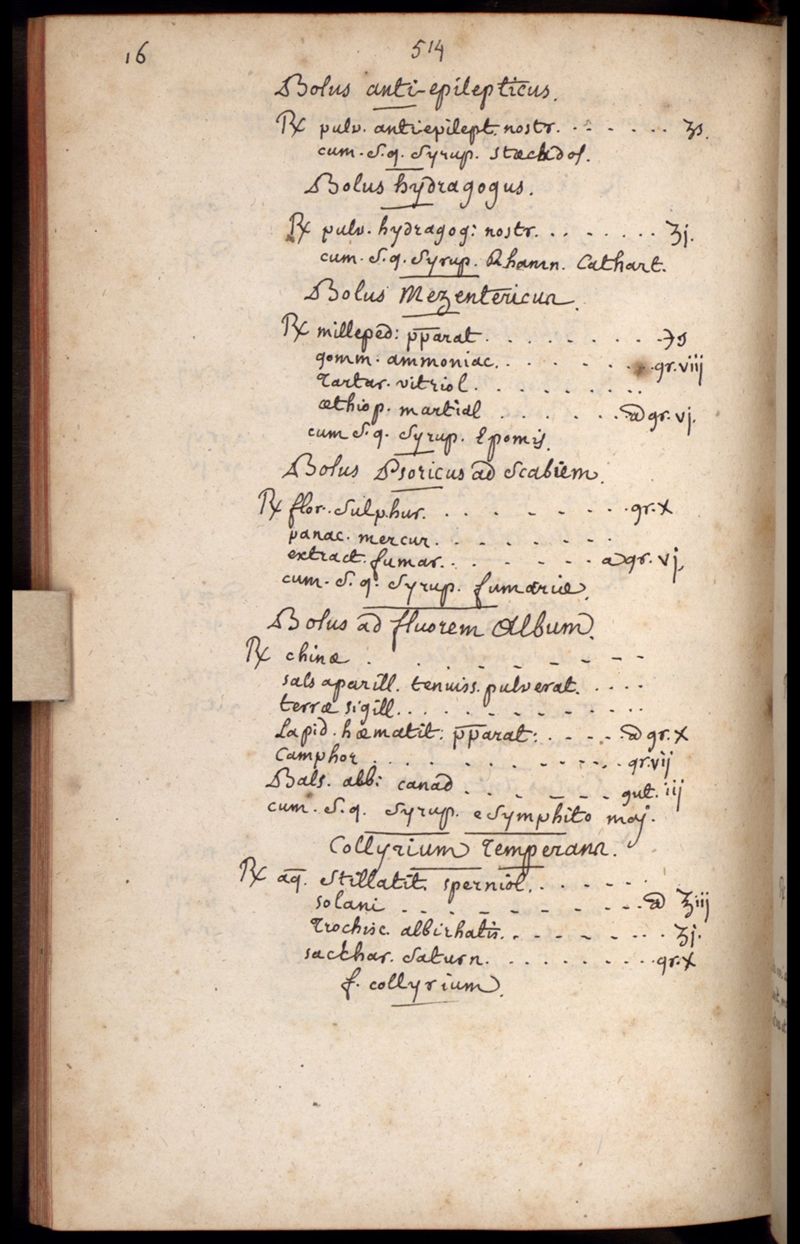 16
514
Bolus anti-epilepticus.
℞ pulv. antiepilept. nostr. . - - - . . . ʒs.
cum. S.q. Syrup. Stœchdos.
Bolus hydragogus.
℞ pulv. hydragog: nostr. . . - . . . . ʒj.
cum. S.q. Syrup. Rhamn. Cathart.
Bolus Mezentericus.
℞ milleped: pp̄arat. . . . . . . . . ℈s
gomm. ammoniac. . . . . . . . gr. viij
Tartar. vitriol . . . . . . . . .
æthiop. martial . . . . . . a͞a gr. vj.
cum S.q. Syrup. Epomis.
Bolus Psoricus ad Scabiem.
℞ flor. Sulphur. . . . - - - - . gr. x
panac. mercur. . . . . . . . .
extract. fumar. . . . . . . . aa gr. vj.
cum. S. q. Syrup. fumariæ.
Bolus ad fluorem Album.
℞ chinæ . . . . - - - - - -
salsaparill. tenuiss. pulverat. . . . .
terræ sigill. . . . . . . . . . . .
Lapid. hæmatit: pp̄arat: . - - . a͞a gr. x
Camphor . . . . . . . . - . . gr. vij
Bals. alb: canad . . . - - - gut. iij
cum. S. q. Syrup. e Symphito maj.
Collyrium Temperans.
℞ aq. Stillatit. sperniol. . . . - - .
solani - . - - - - - - - . a͞a ʒiij
Trochisc. albirhasis. . - . . - - - . . ʒj.
sacchar. Saturn. . . . . . . . . . gr. x
f. collyrium.